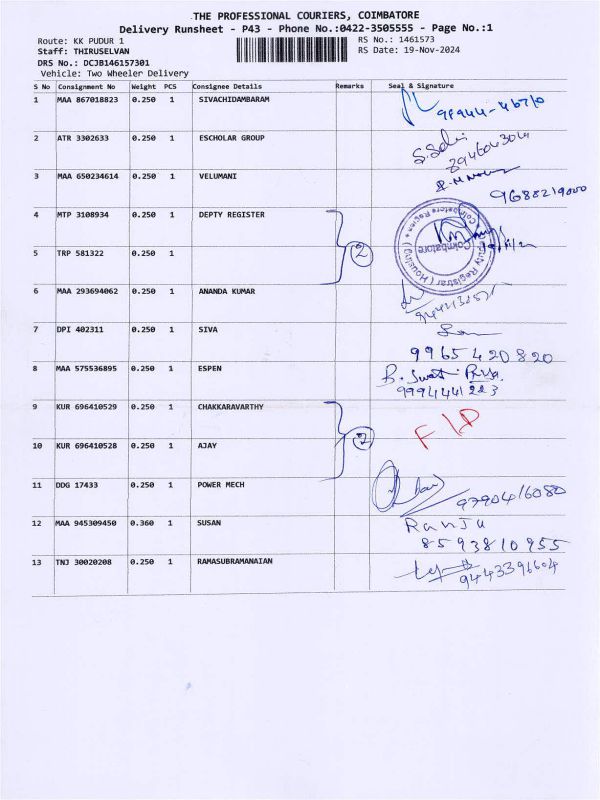 THE PROFESSIONAL COURIERS, COIMBATORE
Delivery Runsheet - P43 - Phone No.:0422-3505555 - Page No.:1
Route: KK PUDUR 1 RS No.: 1461573
Staff: THIRUSELVAN RS Date: 19-Nov-2024
DRS No.: DCJB146157301
Vehicle: Two Wheeler Delivery
S No Consignment No Weight PCS Consignee Details Remarks Seal & Signature
1 MAA 867018823 0.250 1 SIVACHIDAMBARAM
2 ATR 3302633 0.250 1 ESCHOLAR GROUP
3 MAA 650234614 0.250 1 VELUMANI
9688219000
4 MTP 3108934 0.250 1 DEPTY REGISTER
Coimbatore
5 TRP 581322 0.250 1 2
6 MAA 293694062 0.250 1 ANANDA KUMAR
7 DPI 402311 0.250 1 SIVA
9965420820
8 MAA 575536895 0.250 1 ESPEN
9994441223
9 KUR 696410529 0.250 1 CHAKKARAVARTHY
10 KUR 696410528 0.250 1 AJAY 2
11 DDG 17433 0.250 1 POWER MECH
9790416080
12 MAA 945309450 0.360 1 SUSAN Ranju
8593810955
13 TNJ 30020208 0.250 1 RAMASUBRAMANAIAN
9443396604